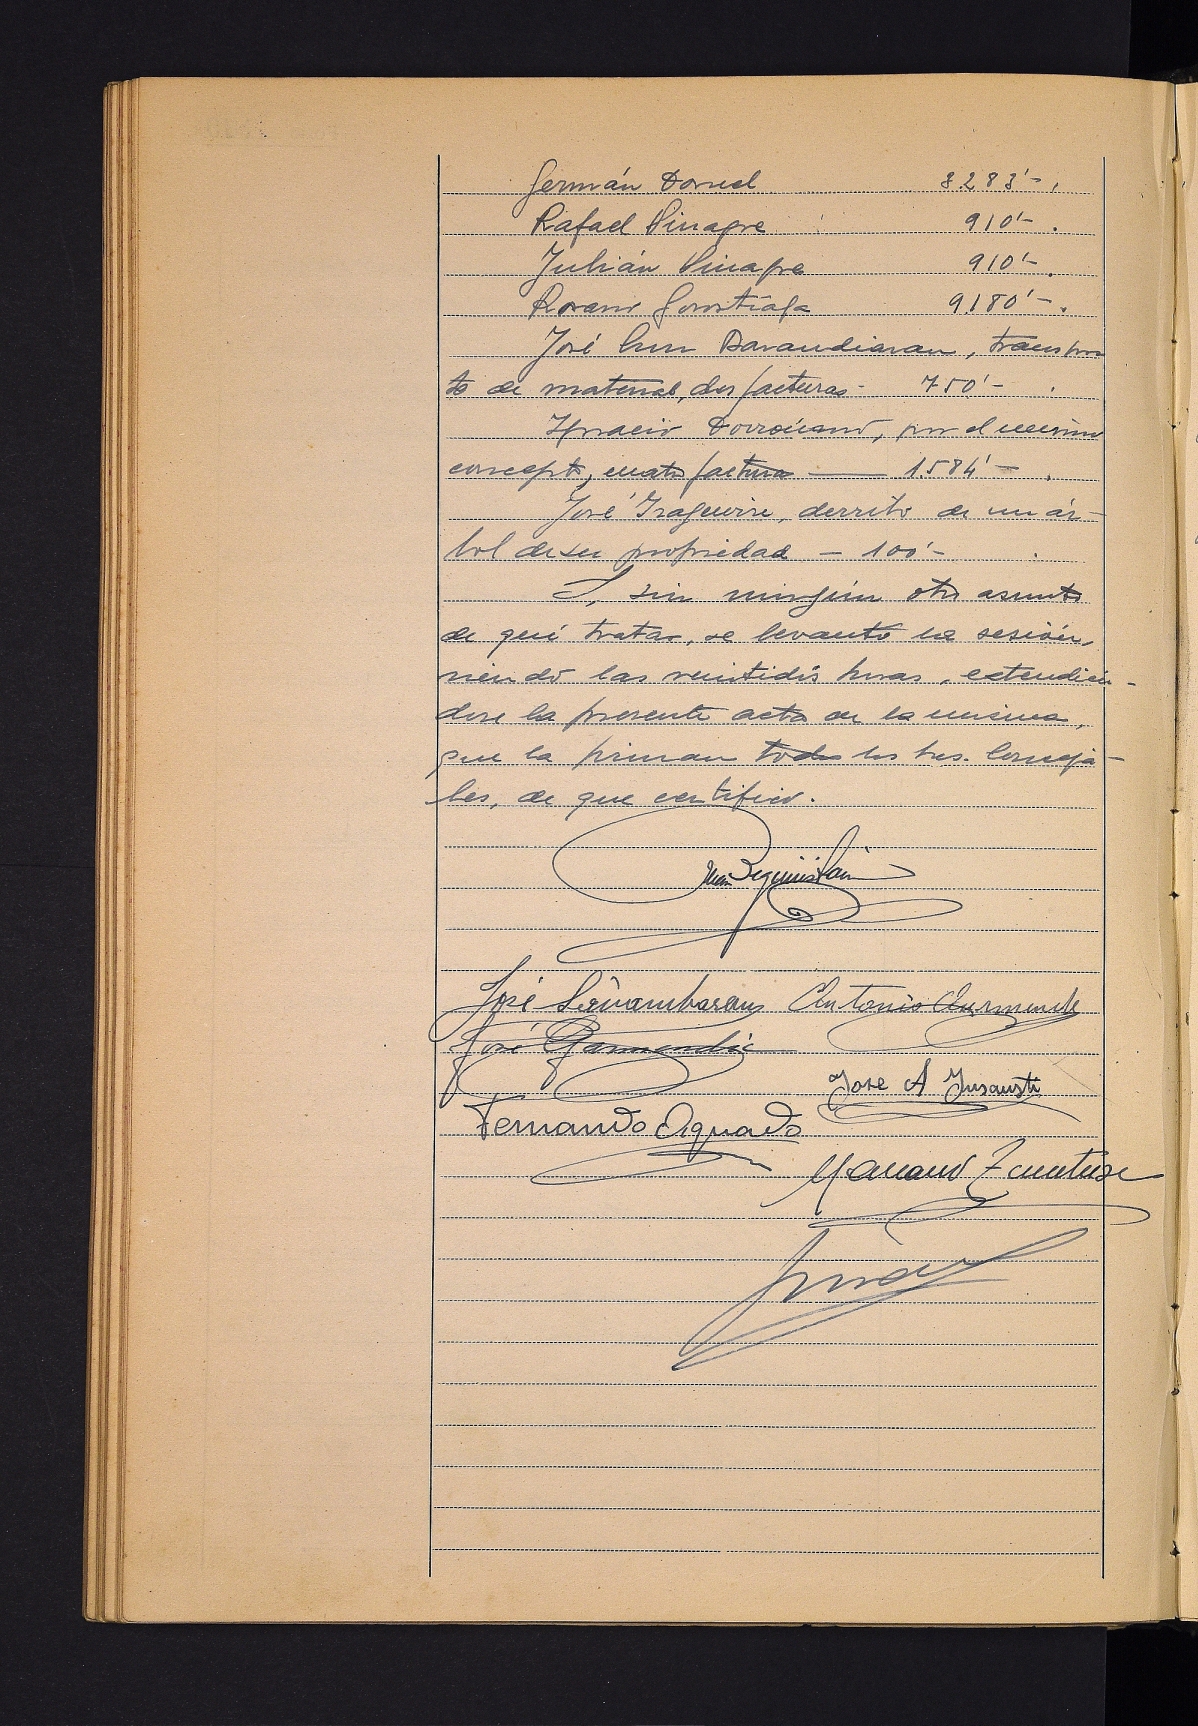 Germán 3.283'-.
Rafael Vinagre 910'-.
Julián Vinagre 910'-.
Rosario Gorostiaga 9.180'-.
José Luis Barandiaran, transpor
te de material, dos facturas - 750'- .
Ignacio Dorronsoro, por el mismo
concepto, cuatro facturas —— 1.584'- .
José Izaguirre, derribo de un ár-
bol de su propiedad - 100'- .
Y, sin ningún otro asunto
de qué tratar, se levantó la sesión,
siendo las veintidós horas, extendién-
dose la presente acta de la misma,
que la firman todos los tres. Conceja-
les, de que certifico.
Juan Beguiristain
José Antonio
José Garmendia
Jose A Insausti
Fernando Aguado
Mariano